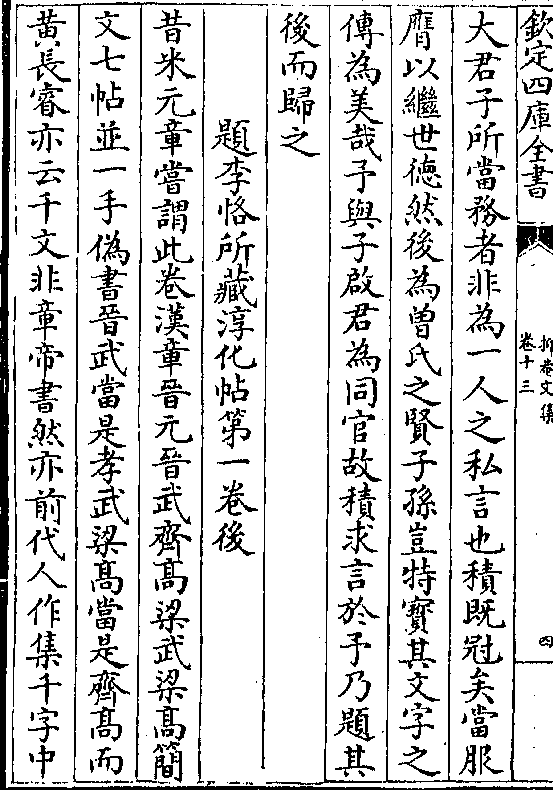 欽定四庫全書
抑菴文集
卷十三
四
大君子所當務者非為一人之私言也積既冠矣當服
膺以繼世德然後為曾氏之賢子孫豈特寳其文字之
傳為美哉予與子啟君為同官故積求言於予乃題其
後而歸之
題李恪所藏淳化帖第一卷後
昔米元章嘗謂此卷漢章晉元晉武齊髙梁武梁髙簡
文七帖並一手偽書晉武當是孝武梁髙當是齊髙而
黄長睿亦云千文非章帝書然亦前代人作集千字中